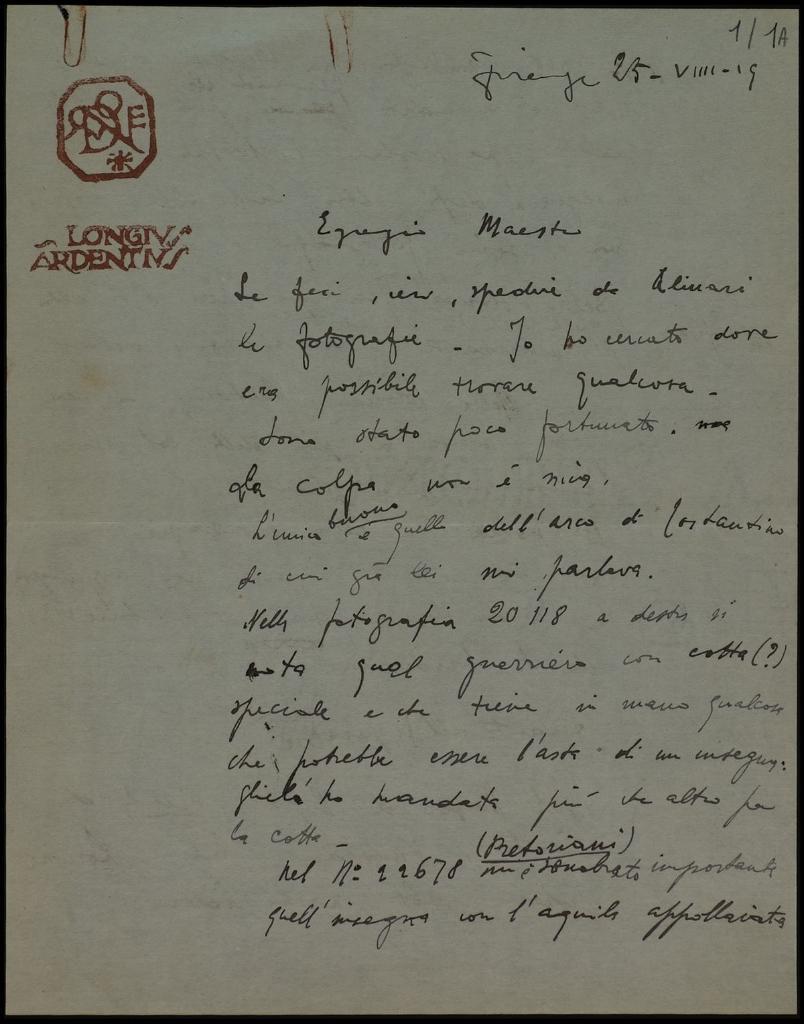 1/1A
Firenze 25-VIIII-19
LONGIVS
ARDENTIVS
Egregio Maestro
Le feci, ieri, spedire da Alinari
le fotografie - Io ho cercato dove
era possibile trovare qualcosa -
Sono stato poco fortunato.
La colpa non è mia.
L'unica buona è quella dell'arco di Costantino
di cui già lei mi parlava.
Nella fotografia 20118 a destra si
nota quel guerriero con cotta (?)
speciale e che tiene in mano qualcosa
che potrebbe essere l'asta di un insegna:
gliel'ho mandata più che altro per
la cotta -
Nel Nº 22678 (Pretoriani) mi è sembrato importante
quell'insegna con l'aquila appollaiata